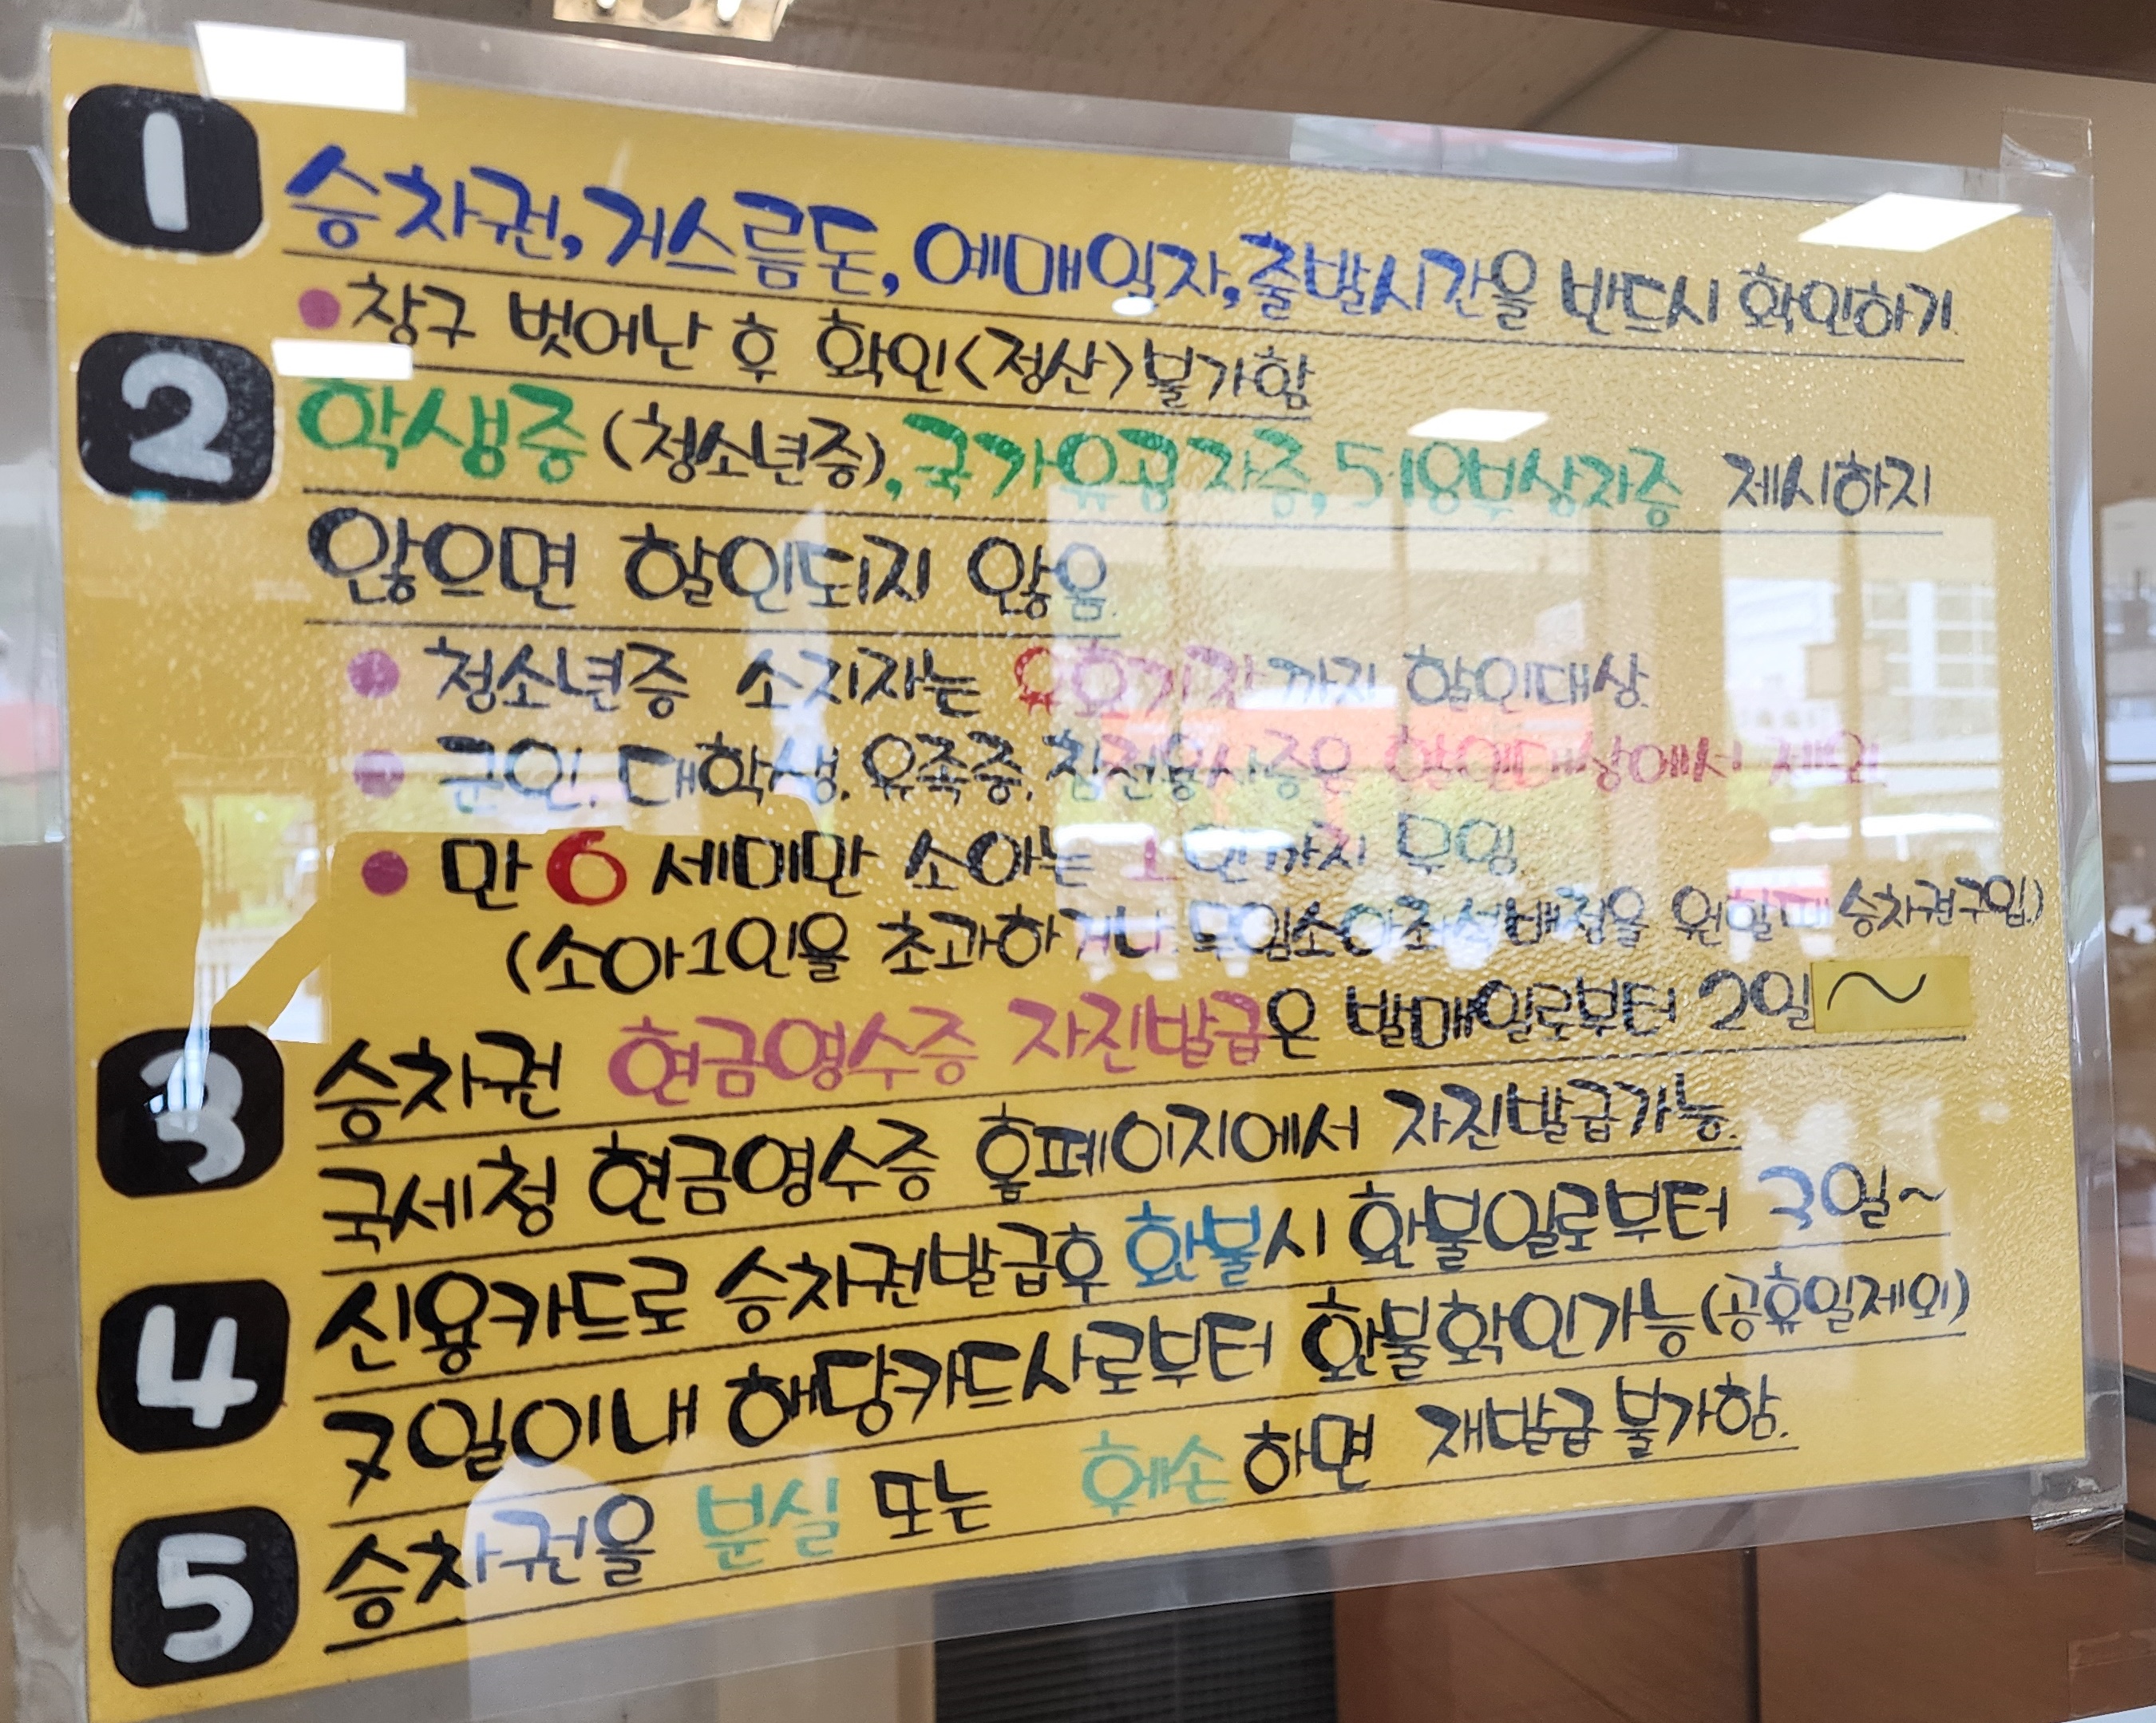 1
승차권, 거스름돈, 예매일자, 출발시간을 반드시 확인하기.
• 창구 벗어난 후 확인<정산>불가함
2
학생증(청소년증), 국가유공자증, 5·18부상자증 제시하지
않으면 할인되지 않음.
• 청소년증 소지자는 유효기간까지 할인대상.
• 군인. 대학생. 유족증. 참전용사증은 할인대상에서 제외.
• 만 6세미만 소아는 1인까지 무임.
(소아1인을 초과하거나 무임소아좌석배정을 원할때 승차권구입.)
3
승차권 현금영수증 자진발급은 발매일로부터 2일~
국세청 현금영수증 홈페이지에서 자진발급가능.
4
신용카드로 승차권발급후 환불시 환불일로부터 3일~
7일이내 해당카드사로부터 환불확인가능(공휴일제외)
5
승차권을 분실 또는 훼손하면 재발급 불가함.